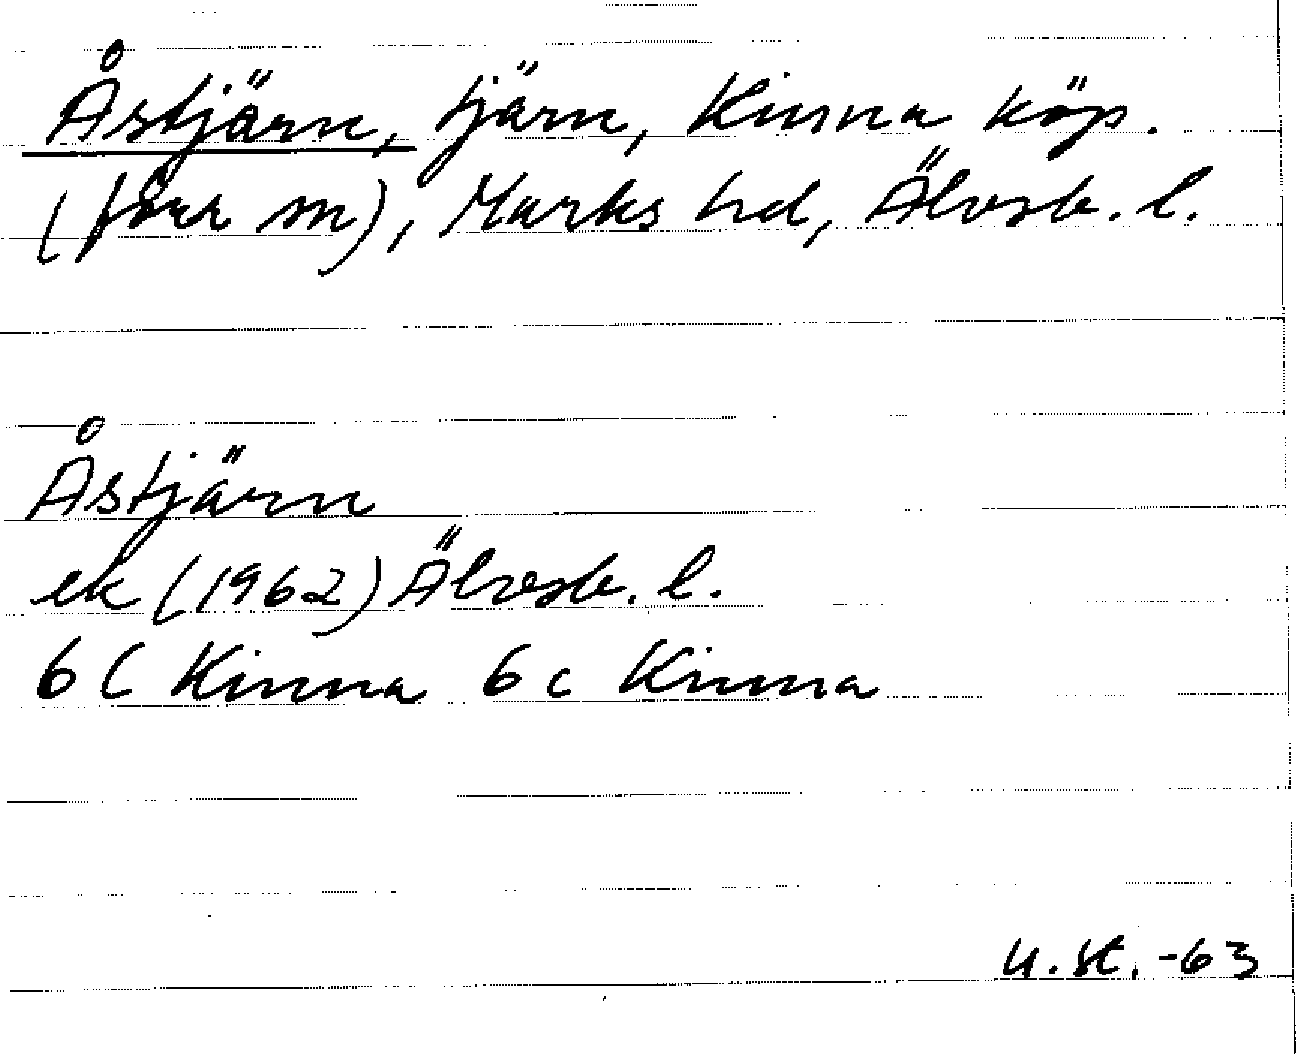 Åstjärn, tjärn, Kinna köp.
(förr sn), Marks hd, Älvsb. l.
Åstjärn
ek (1962) Älvsb. l.
6 C Kinna 6 c Kinna
U. St. -63